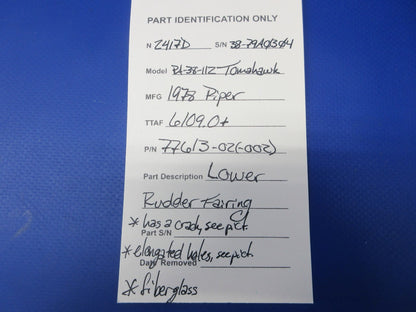 PART IDENTIFICATION ONLY
N 2417D S/N 38-79A0304
Model PA-38-112 Tomahawk
MFG 1978 Piper
TTAF 6109.0+
P/N 77613-02(-002)
Part Description Lower
Rudder Fairing
* has a crack, see pict
Part S/N
* elongated holes, see pict
Date Removed
* fiberglass